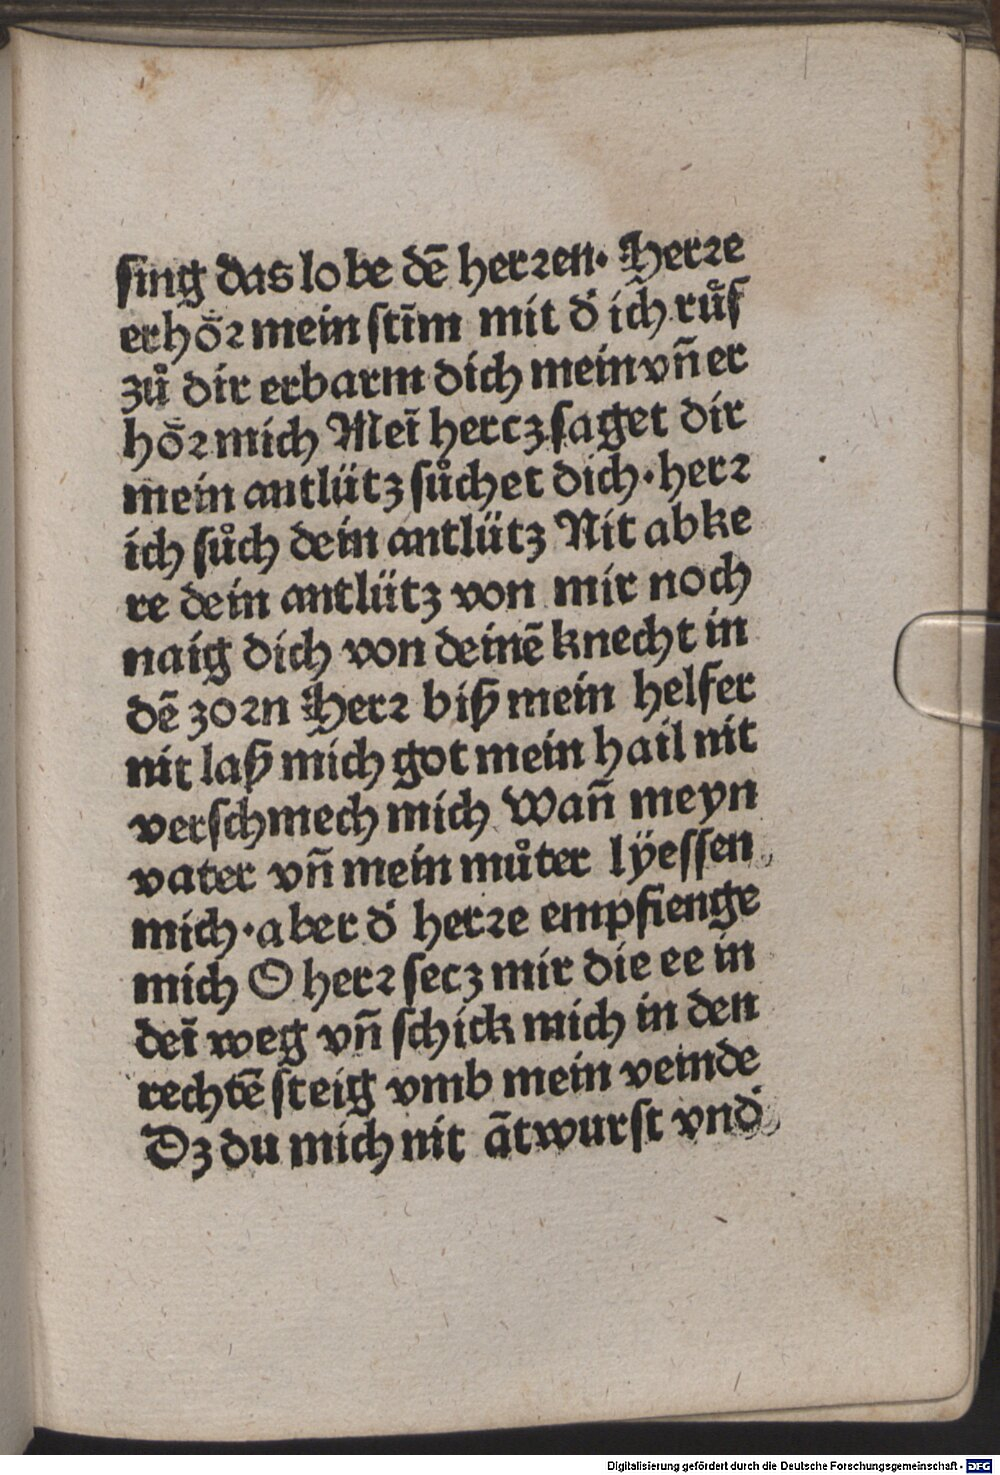 sing das lobe dē herꝛen· Herꝛe
erhöꝛ mein stīm mit d' ich růf
zů dir erbarm dich mein vn̄ er
höꝛ mich Meī hercz saget dir
mein antlütz sůchet dich·herꝛ
ich sůch dein antlütz Nit abke
re dein antlütz von mir noch
naig dich von deinē knecht in
dē zoꝛn Herꝛ biß mein helfer
nit laß mich got mein hail nit
verschmech mich Wan̄ meyn
vater vn̄ mein můter lÿessen
mich·aber d' herꝛe empfienge
mich O herꝛ secz mir die ee in
deī weg vn̄ schick mich in den
rechtē steig vmb mein veinde
Dz du mich nit ātwurst vnd'
Digitalisierung gefördert durch die Deutsche Forschungsgemeinschaft - DFG